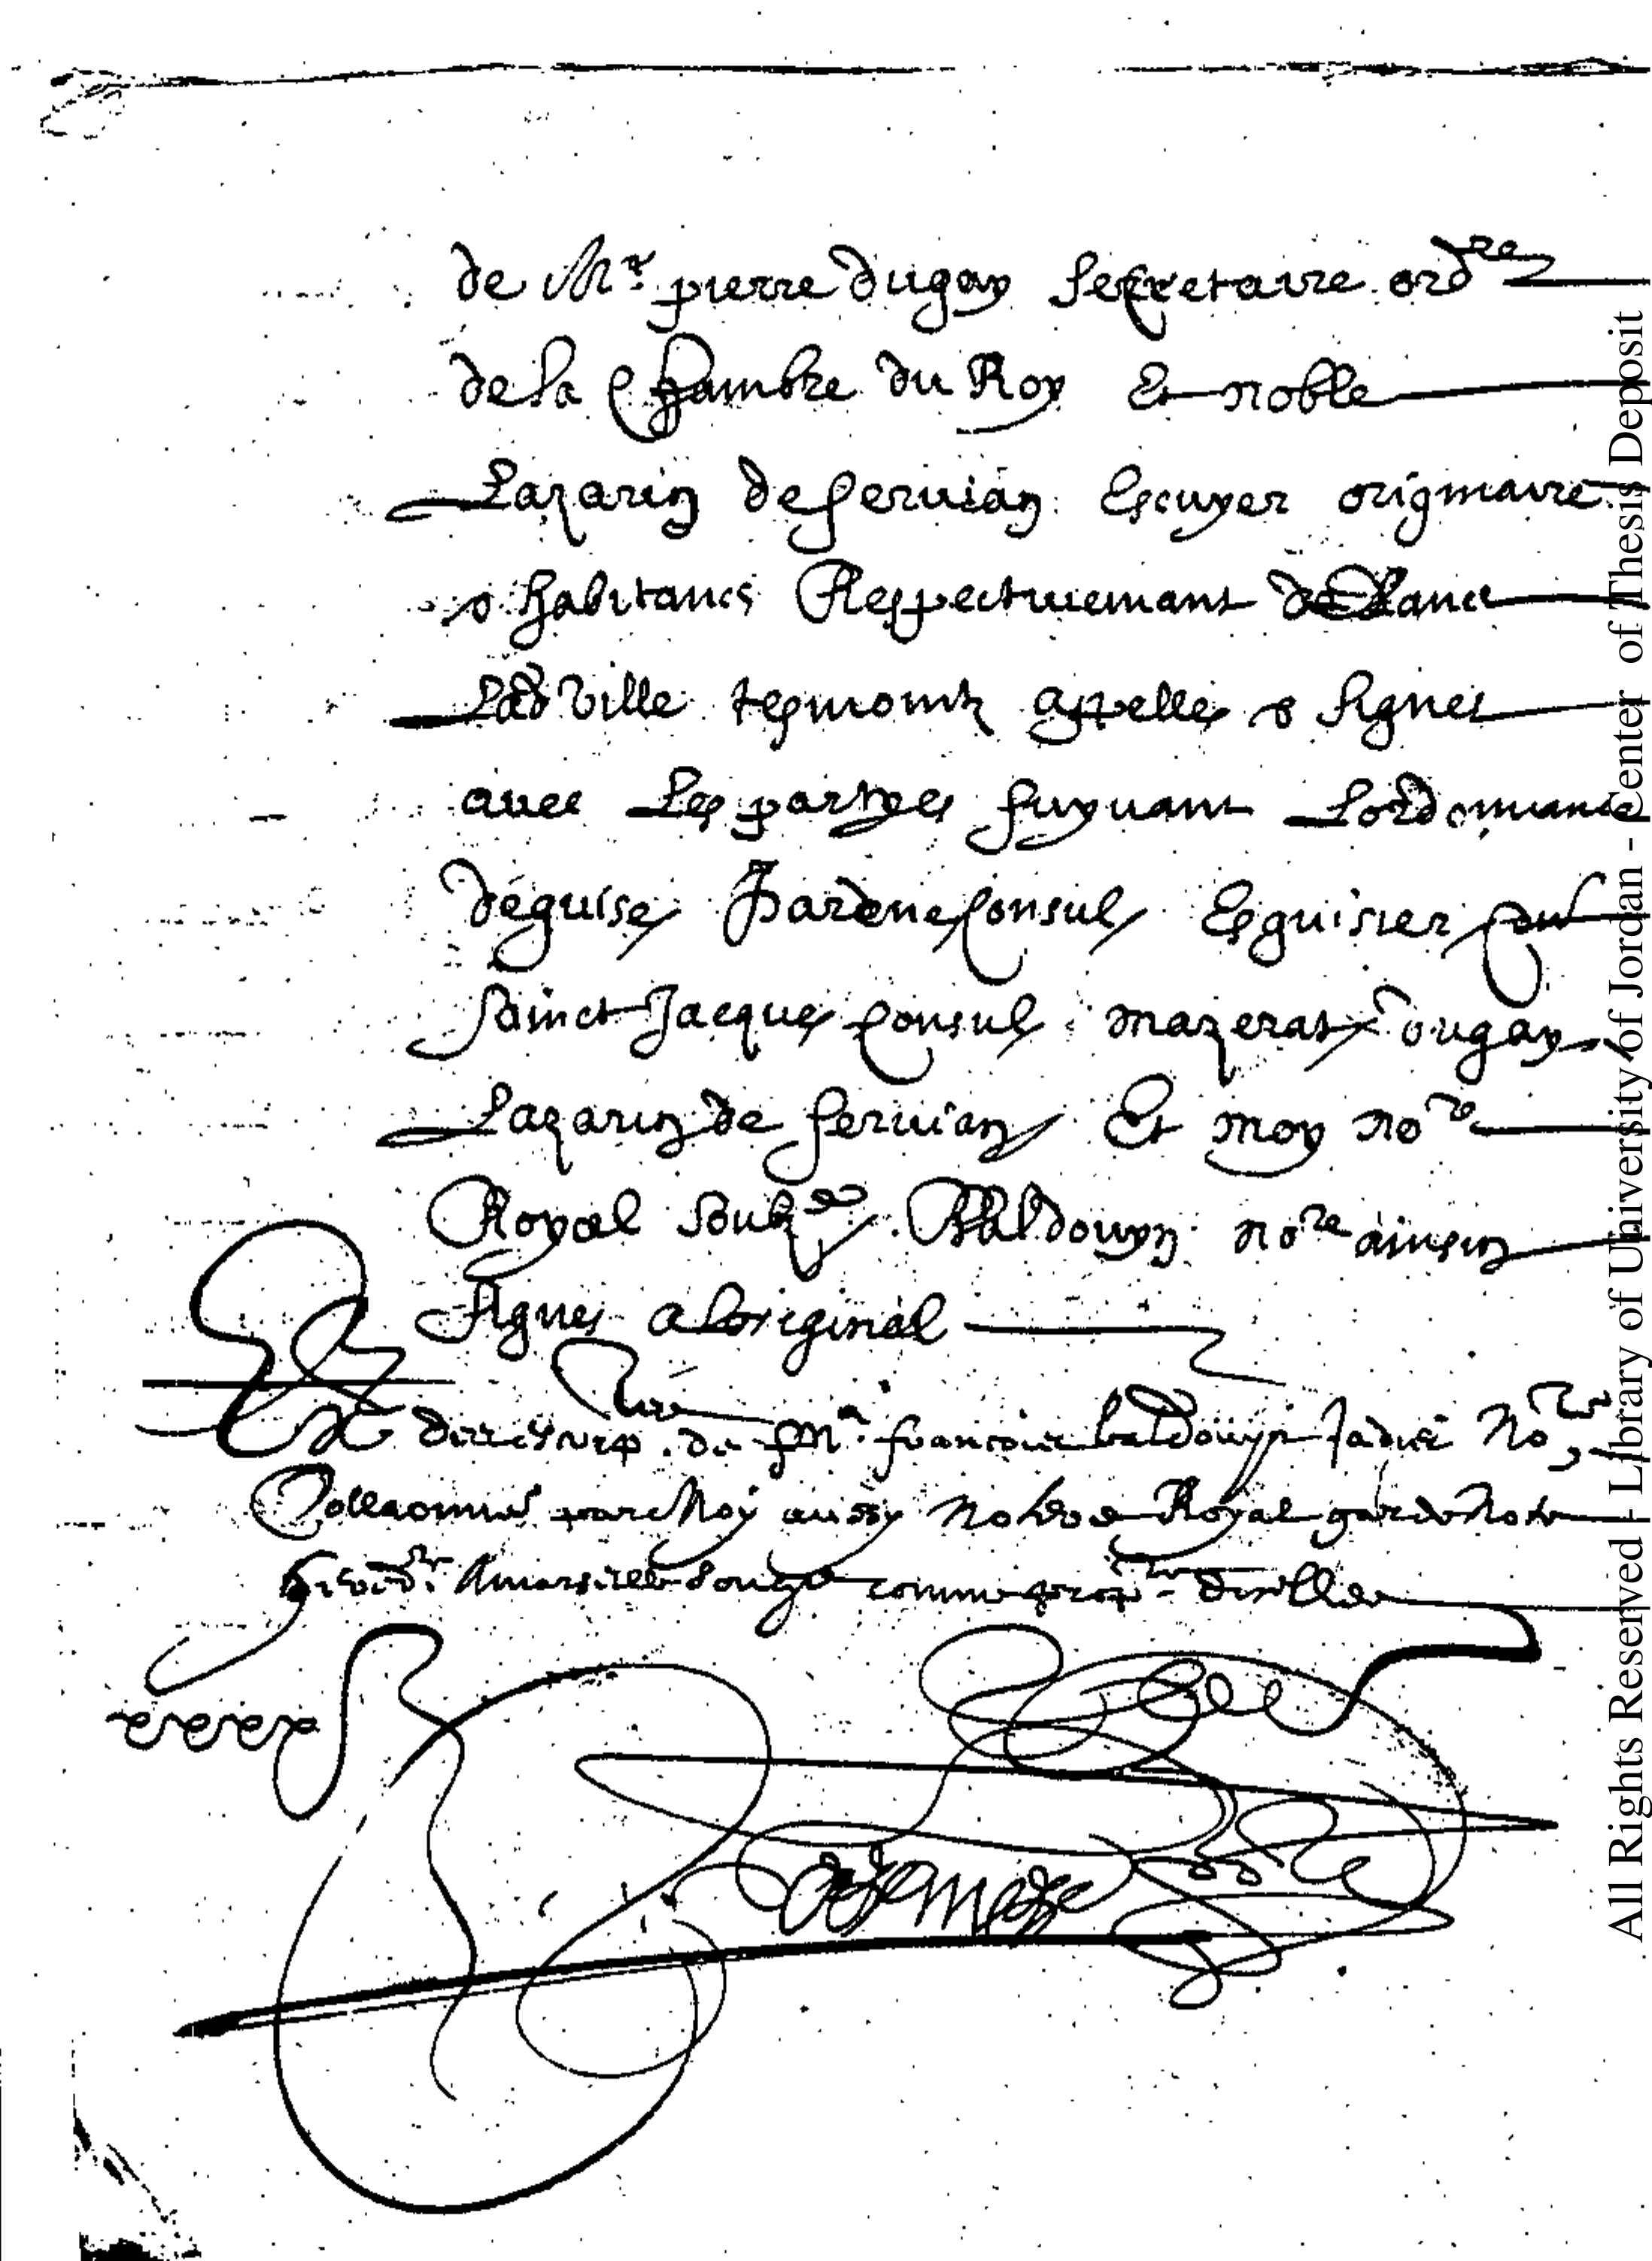 de Mr pierre dugay secretaire ordre
de la Chambre du Roy Et noble
Lazarin de servian Escuyer originaire
& habitans Respectivemant
Lad ville tesmointz appelles & signes
avec Les partyes suyvant Lordonnance
deguise Jardene consul Esguisier
sainct Jacques consul mazerat dugay
Lazarin de servian Et moy nore
Royal soubzne Baldouyn nore ainsin
signes a loriginal
Tiré
de Mr francois baldouyn Jadis Nore
Collaonné par Moy aussy Royal garde
Amarseille comme
All Rights Reserved - Library of University of Jordan - Center of Thesis Deposit